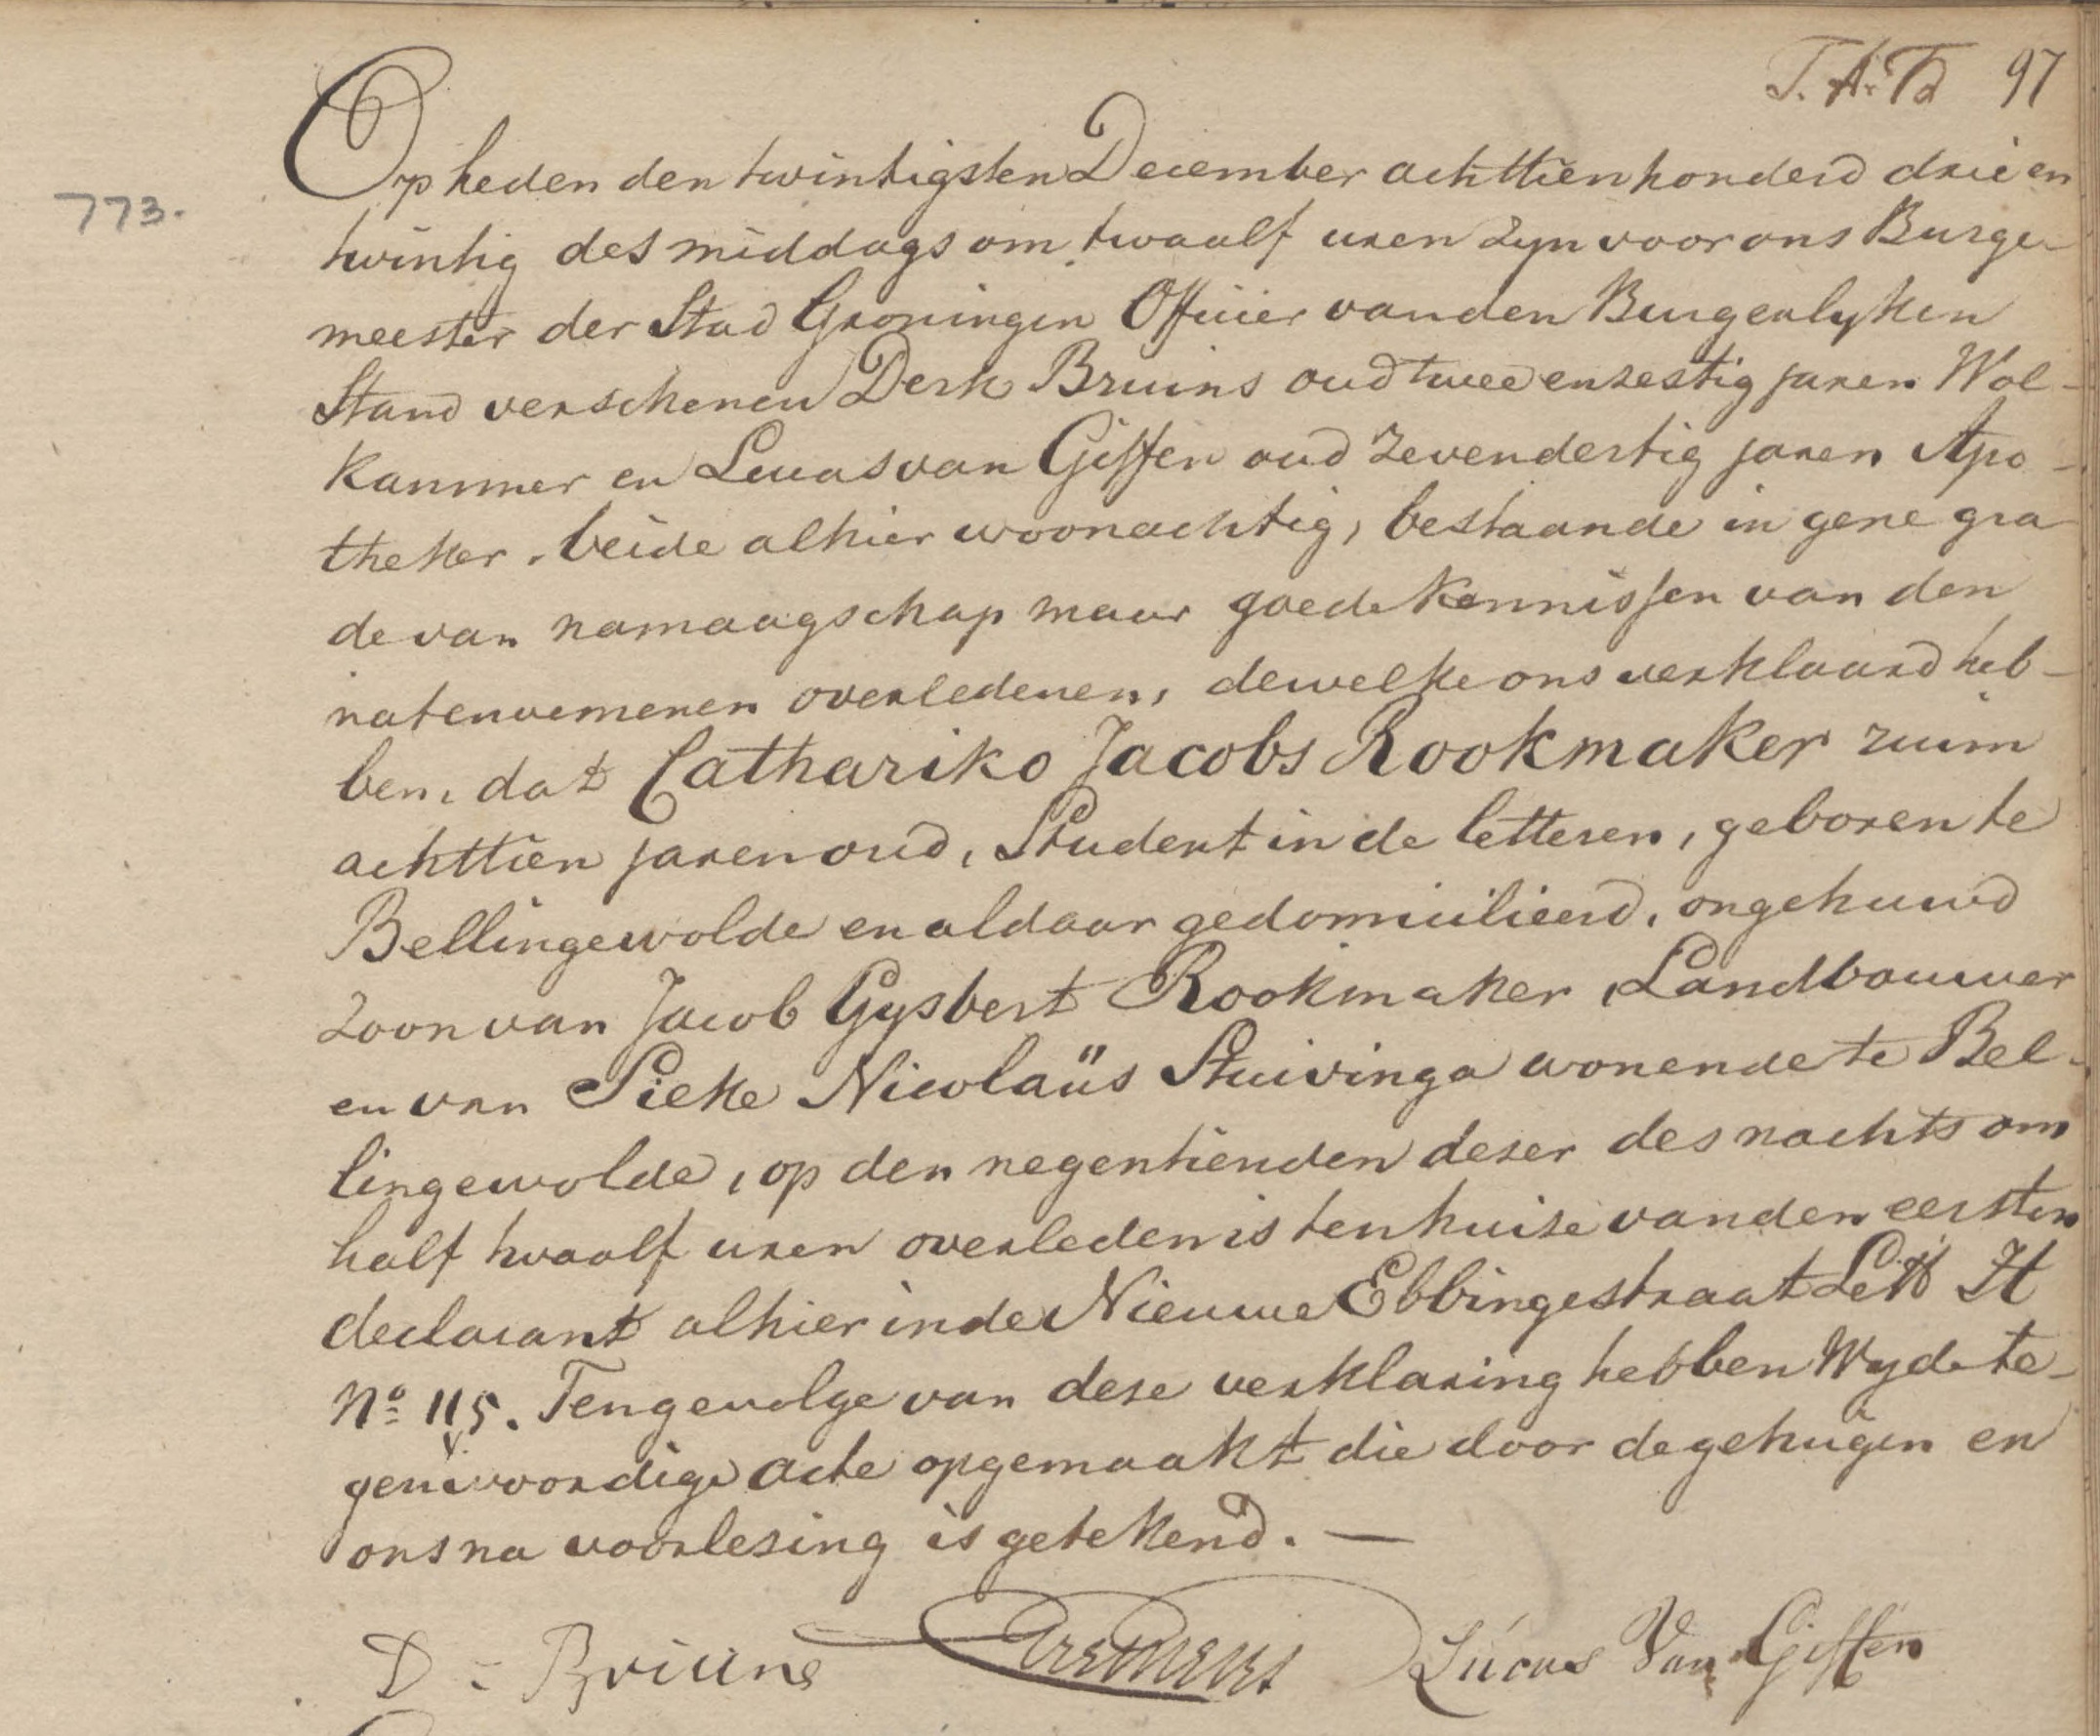 97
773.
Op heden den twintigsten December achttienhonderd drie en
twintig des middags om twaalf uren zyn voor ons Burge-
meester der Stad Groningen Officier van den Burgerlyken
Stand verschenen Derk Bruins oud twee en zestig jaren Wol-
kammer en Lucas van Giffen oud zevendertig jaren Apo-
theker, beide alhier woonachtig, bestaande in gene gra
de van namaagschap maar goede kennissen van den
natenoemenen overledenen, dewelke ons verklaard heb-
ben, dat Cathariko Jacobs Rookmaker ruim
achttien jaren oud, Student in de letteren, geboren te
Bellingewolde en aldaar gedomicilieerd, ongehuwd
zoon van Jacob Gysbert Rookmaker, Landbouwer
en van Sieke Nicolaüs Stuivinga wonende te Bel-
lingewolde, op den negentienden dezer des nachts om
half twaalf uren overleden is ten huize van den eersten
declarant alhier in de Nieuwe Ebbingestraat Lett H
No 115. Tengevolge van deze verklaring hebben Wy de te-
genwoordige acte opgemaakt die door de getuigen en
ons na voorlezing is getekend. —
D = Bruins Cremers Lucas Van Giffen